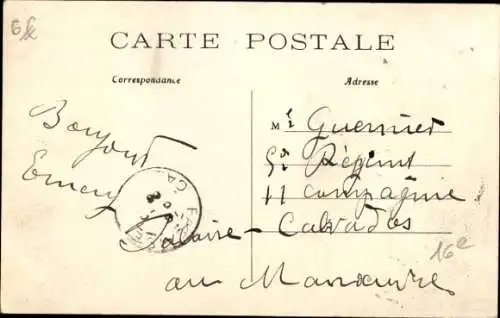 CARTE POSTALE
Correspondance
Adresse
Bonjour
Mr Guernier
5e Régiment
11 Compagnie
Falaise - Calvados
au Manœuvre
16e